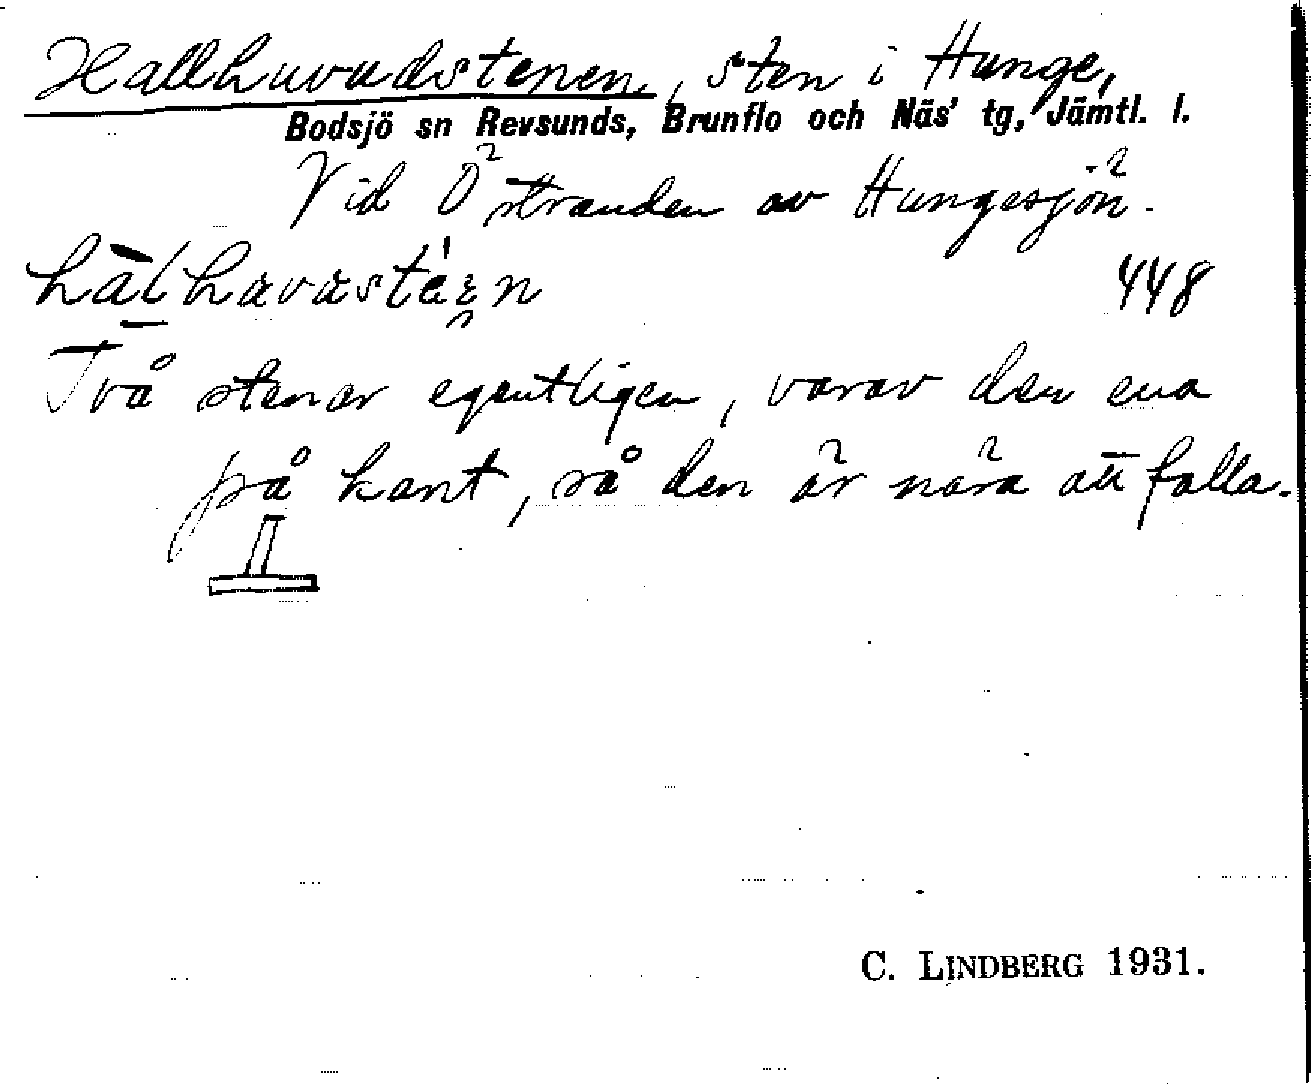 Hallhuvudstenen, sten i Hunge,
Bodsjö sn Revsunds, Brunflo och Näs' tg, Jämtl. l.
Vid Östranden av Hungesjön.
448
Två stenar egentligen, varav den ena
på kant, så den är nära att falla.
C. LINDBERG 1931.